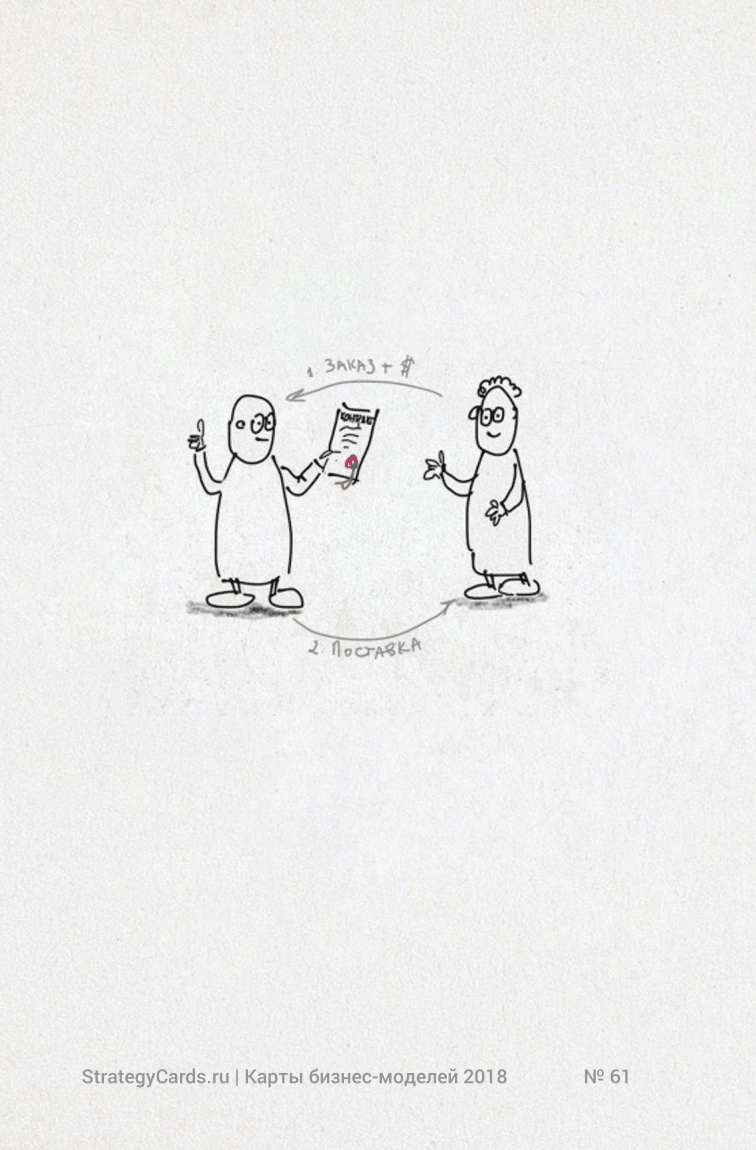 1. ЗАКАЗ + $
КОНТРАКТ
2. ПОСТАВКА
StrategyCards.ru | Карты бизнес-моделей 2018 № 61